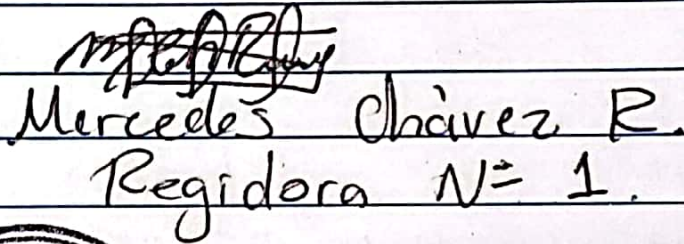 Mercedes Chávez R.
Regidora Nº 1.